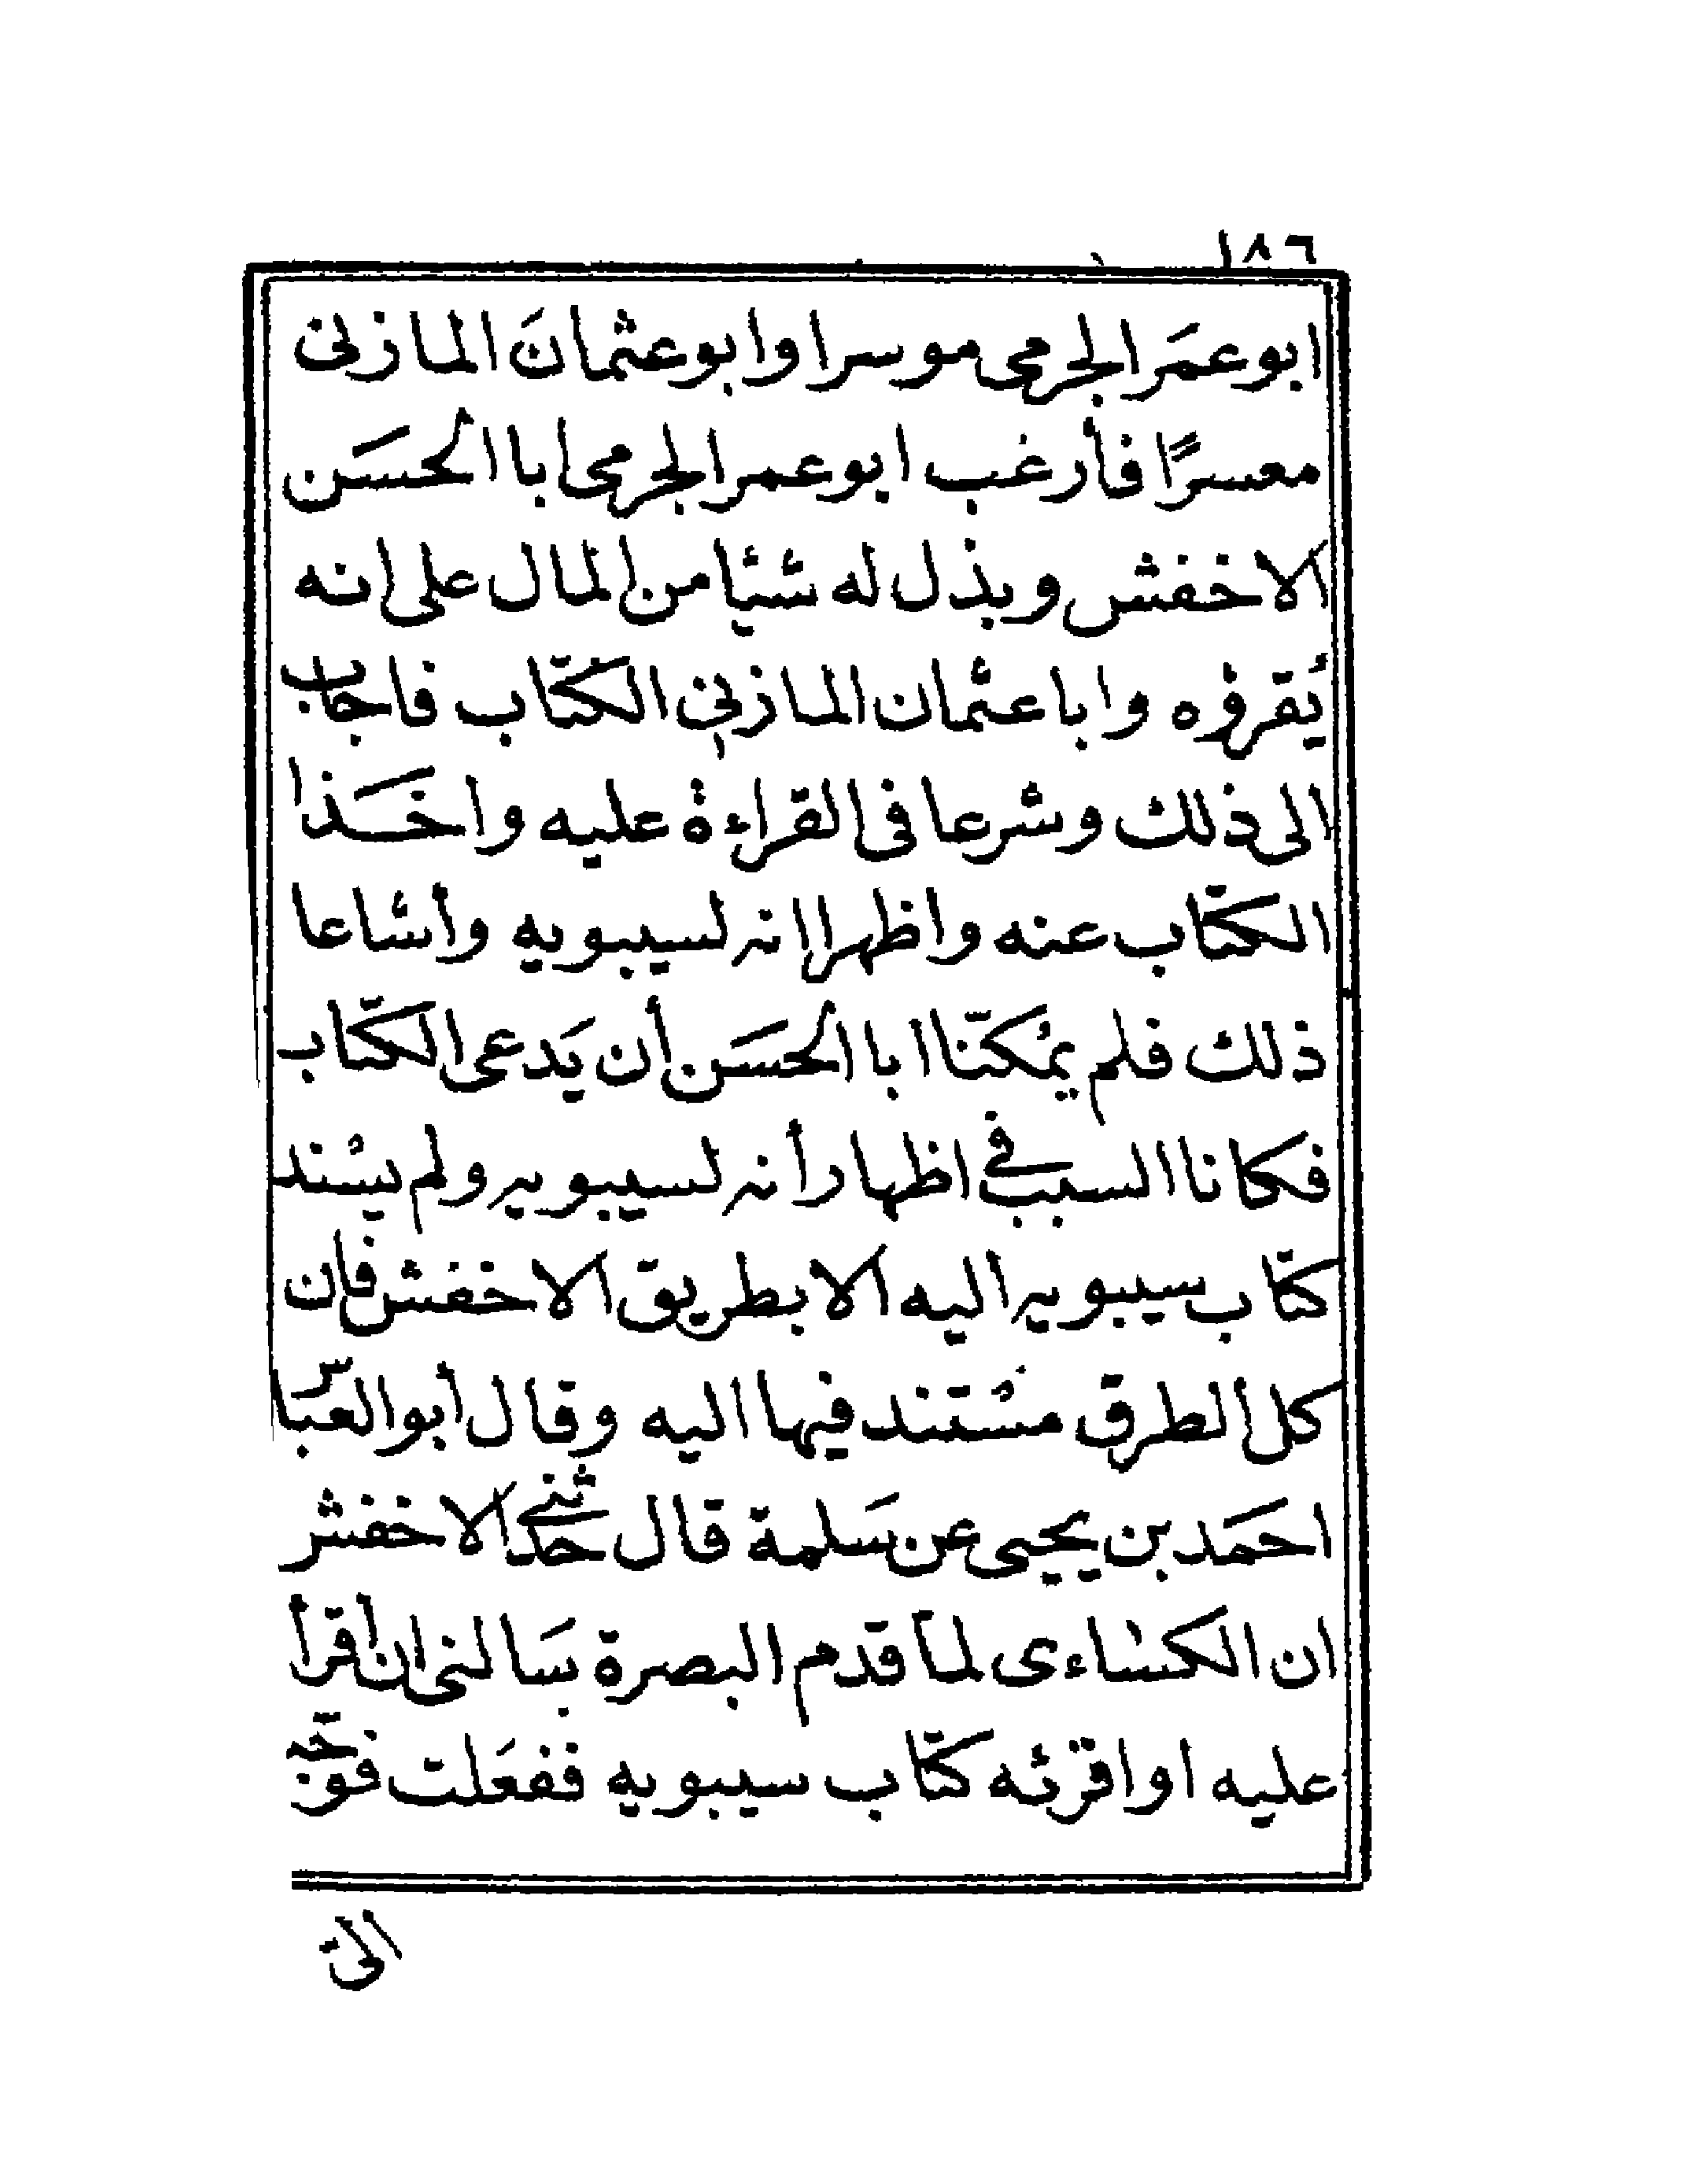 ١٨٦
ابو عمَر الجرمى موسرا وابو عثمانَ المازنى
معسرًا فأرغب ابو عمر الجرمى ابا الحسَن
الاخفش وبذل له شئيا من المال على انه
يُقرؤه وابا عثمان المازنى الكتاب فاجاب
الى ذلك وشرعا فى القراءة عليه واخَذا
الكتاب عنه واظهرا انه لسيبويه وأشاعا
ذلك فلم يمُكنّا ابا الحسَن أن يَدعى الكتاب
فكانا السبب فى اظهار أنه لسيبويه ولم يسْند
كتاب سيبويه اليه الا بطريق الاخفش فان
كل الطرق مسْتند فيها اليه وقال أبو العبّاس
احمَد بن يحيى عن سَلمة قال حَدثنى الاخفش
ان الكسْاءى لمّا قدم البصرة سَالنى ان أقرأ
عليه او اقرئه كتاب سيبويه ففعَلت فوجّه
الىّ